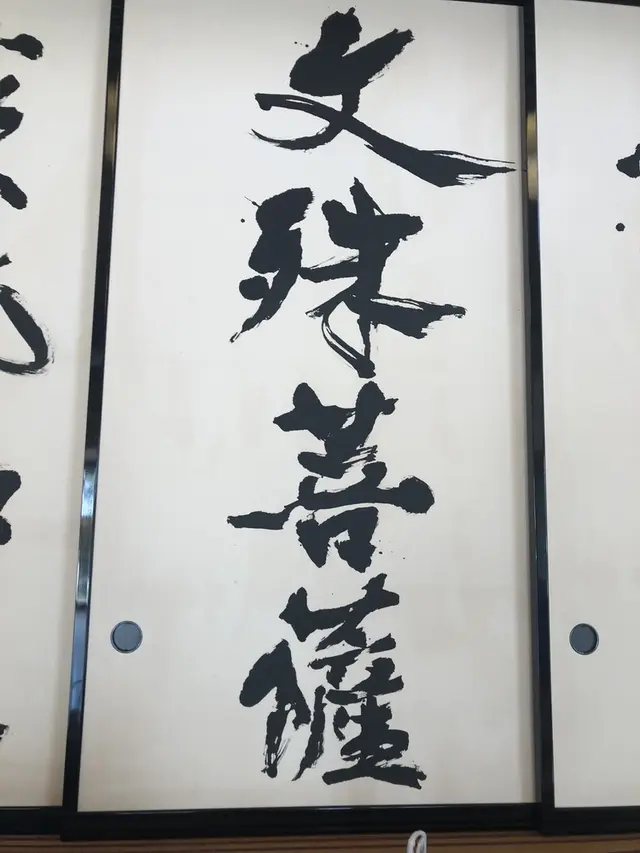 文殊菩薩